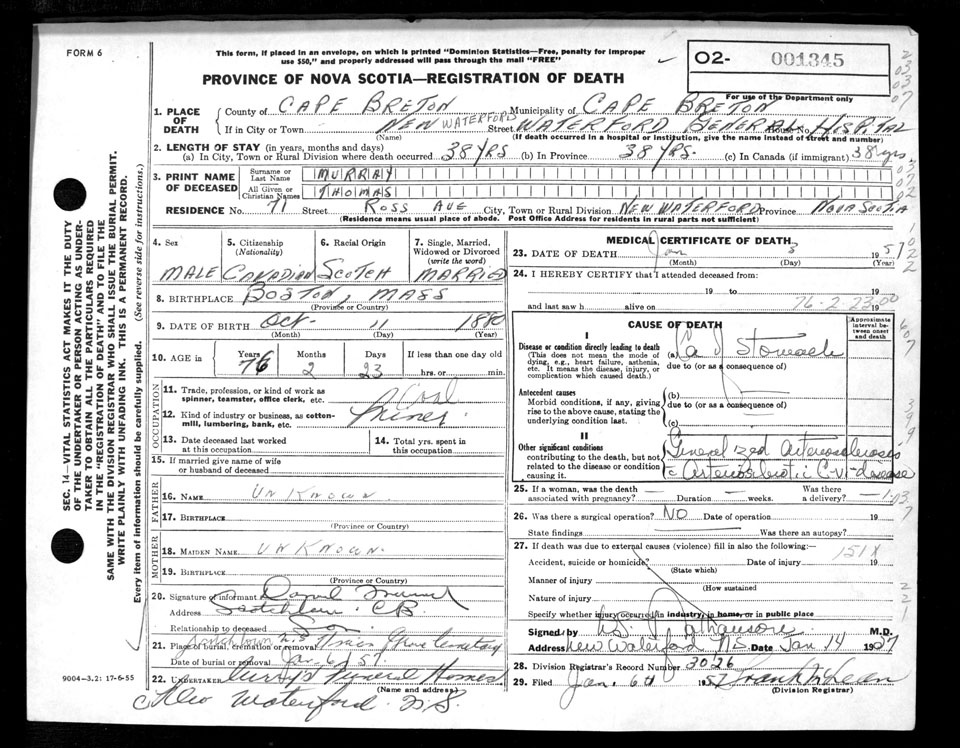 FORM 6
This form, if placed in an envelope, on which is printed "Dominion Statistics—Free, penalty for improper
use $50," and properly addressed will pass through the mail "FREE"
O2- 001345
For use of the Department only
PROVINCE OF NOVA SCOTIA—REGISTRATION OF DEATH
1. PLACE OF DEATH
County of CAPE BRETON Municipality of CAPE BRETON
If in City or Town NEW WATERFORD Street WATERFORD GENERAL House No. HOSPITAL
(Name) (If death occurred in a hospital or institution, give the name instead of street and number)
2. LENGTH OF STAY (in years, months and days)
(a) In City, Town or Rural Division where death occurred 38 YRS (b) In Province 38 YRS. (c) In Canada (if immigrant) 38 yrs
3. PRINT NAME OF DECEASED
Surname or Last Name MURRAY
All Given or Christian Names THOMAS
RESIDENCE No. 71 Street ROSS AVE City, Town or Rural Division NEW WATERFORD Province NOVA SCOTIA
(Residence means usual place of abode. Post Office Address for residents in rural parts not sufficient)
4. Sex MALE
5. Citizenship (Nationality) CANADIAN
6. Racial Origin SCOTCH
7. Single, Married, Widowed or Divorced (write the word) MARRIED
8. BIRTHPLACE BOSTON, MASS
(Province or Country)
9. DATE OF BIRTH Oct. 11 1880
(Month) (Day) (Year)
10. AGE in Years 76 Months 2 Days 23 If less than one day old
hrs. or min.
OCCUPATION
11. Trade, profession, or kind of work as
spinner, teamster, office clerk, etc. Coal
12. Kind of industry or business, as cotton-
mill, lumbering, bank, etc. Miner
13. Date deceased last worked
at this occupation
14. Total yrs. spent in
this occupation
15. If married give name of wife
or husband of deceased
FATHER
16. NAME UNKNOWN
17. BIRTHPLACE
(Province or Country)
MOTHER
18. MAIDEN NAME UNKNOWN.
19. BIRTHPLACE
(Province or Country)
20. Signature of informant
Address Scotchtown C.B.
Relationship to deceased Son
Scotchtown N.S
21. Place of burial, cremation or removal Cemetary
Date of burial or removal Jan. 6 / 57
22. UNDERTAKER Curry's Funeral Homes
(Name and address)
New Waterford N.S.
9004—3.21: 17-6-55
MEDICAL CERTIFICATE OF DEATH
23. DATE OF DEATH Jan 3 1957
(Month) (Day) (Year)
24. I HEREBY CERTIFY that I attended deceased from:
19 to 19
and last saw h alive on 19
76-2-23.00
CAUSE OF DEATH
Approximate interval between onset and death
I
Disease or condition directly leading to death
(This does not mean the mode of
dying, e.g., heart failure, asthenia,
etc. It means the disease, injury, or
complication which caused death.)
(a) Ca Stomach
due to (or as a consequence of)
Antecedent causes
Morbid conditions, if any, giving
rise to the above cause, stating the
underlying condition last.
(b)
due to (or as a consequence of)
(c)
II
Other significant conditions
contributing to the death, but not
related to the disease or condition
causing it.
Generalized Arteriosclerosis
c Arteriosclerotic C-V-disease
25. If a woman, was the death
associated with pregnancy? Duration weeks. Was there
a delivery?
26. Was there a surgical operation? NO Date of operation 19
State findings Was there an autopsy?
27. If death was due to external causes (violence) fill in also the following:—
151X
Accident, suicide or homicide? Date of injury 19
(State which)
Manner of injury
(How sustained
Nature of injury
Specify whether injury occurred in industry, in home, or in public place
Signed by M.D.
Address New Waterford N.S. Date Jan 14 1957
28. Division Registrar's Record Number 3026
29. Filed Jan. 6th 1957 Frank McLean
(Division Registrar)
SEC. 14—VITAL STATISTICS ACT MAKES IT THE DUTY
OF THE UNDERTAKER OR PERSON ACTING AS UNDER-
TAKER TO OBTAIN ALL THE PARTICULARS REQUIRED
IN THE "REGISTRATION OF DEATH" AND TO FILE THE
SAME WITH THE DIVISION REGISTRAR WHO SHALL ISSUE THE BURIAL PERMIT.
WRITE PLAINLY WITH UNFADING INK. THIS IS A PERMANENT RECORD.
Every item of information should be carefully supplied. (See reverse side for instructions.)